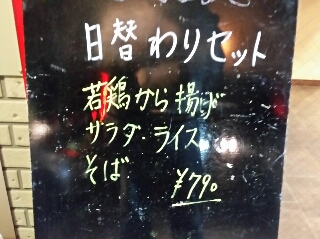 日替わりセット
若鶏から揚げ
サラダ・ライス
そば
¥790